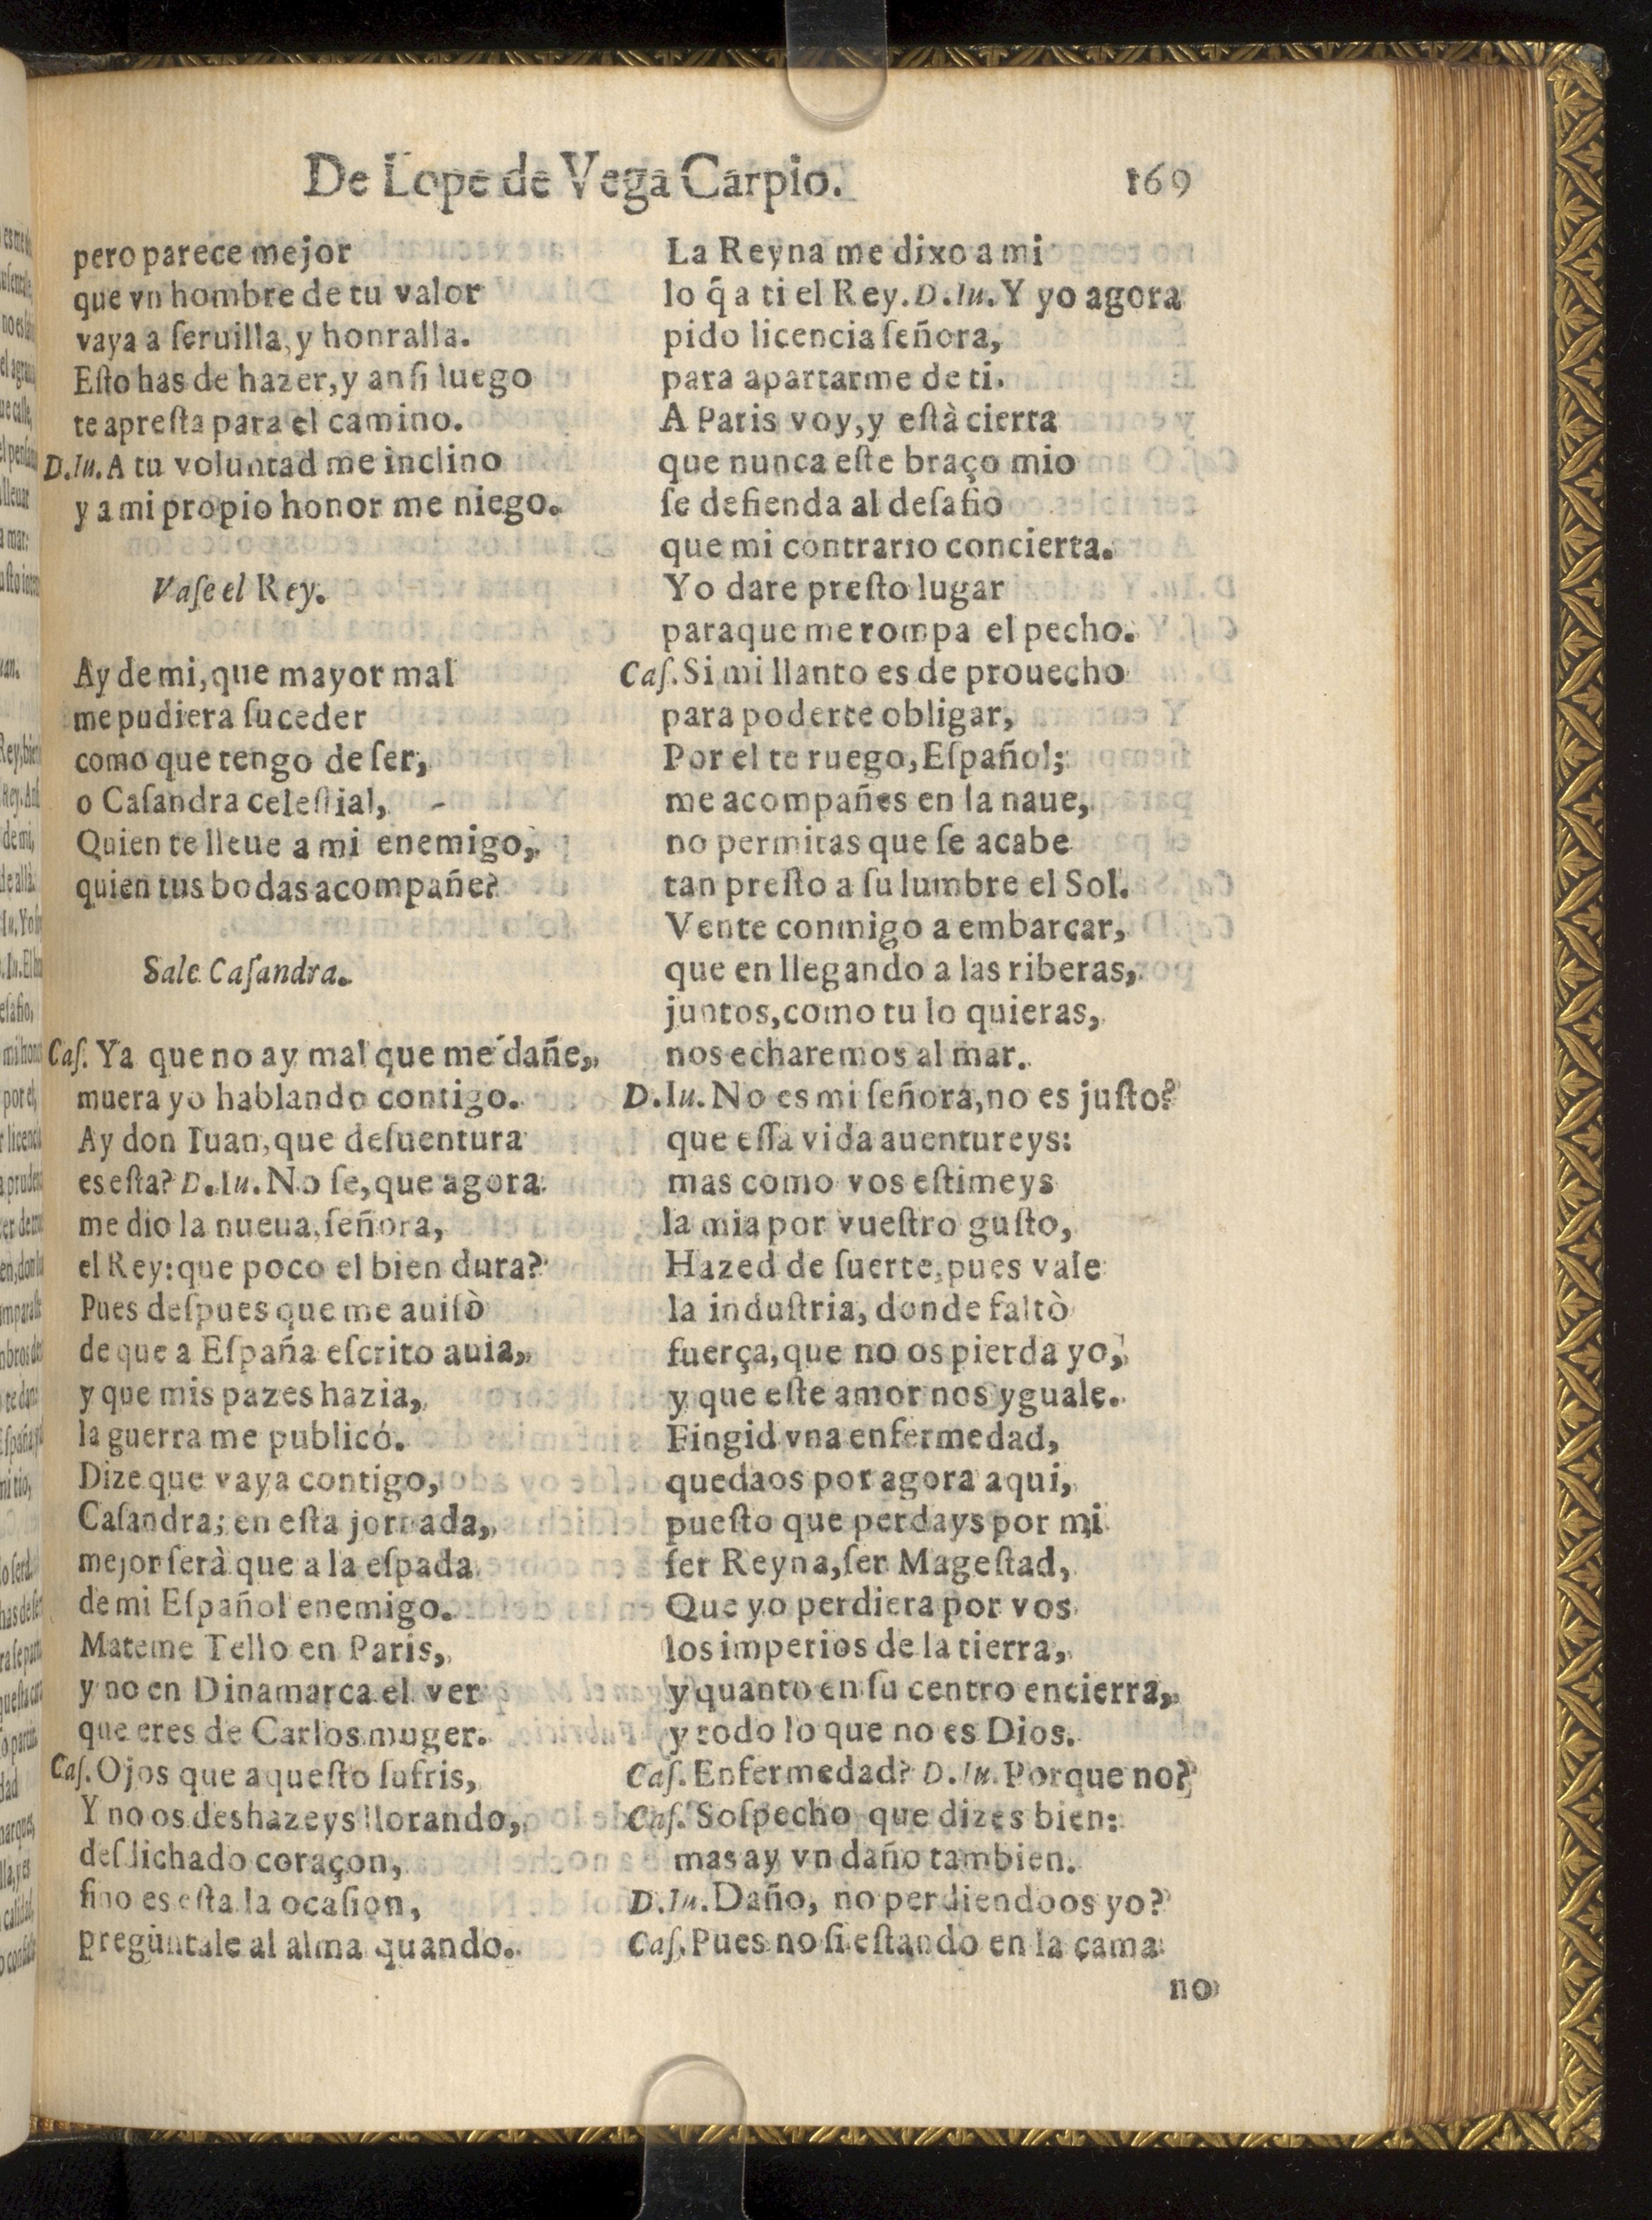 De Lope de Vega Carpio.
169
pero parece mejor
que vn hombre de tu valor
vaya a ſeruilla, y honralla.
Eſto has de hazer, y anſi luego
te apreſta para el camino.
D.Iu. A tu voluntad me inclino
y a mi propio honor me niego.
Vaſe el Rey.
Ay de mi, que mayor mal
me pudiera ſuceder
como que tengo de ſer,
o Caſandra celeſtial,
Quien te lleue a mi enemigo,
quien tus bodas acompañe?
Sale Caſandra.
Caſ. Ya que no ay mal que me dañe,
muera yo hablando contigo.
Ay don Iuan, que deſuentura
es eſta? D.Iu. No ſe, que agora
me dio la nueua, ſeñora,
el Rey: que poco el bien dura?
Pues deſpues que me auiſò
de que a Eſpaña eſcrito auia,
y que mis pazes hazia,
la guerra me publicó.
Dize que vaya contigo,
Caſandra; en eſta jornada,
mejor ſerà que a la eſpada
de mi Eſpañol enemigo.
Mateme Tello en Paris,
y no en Dinamarca el ver
que eres de Carlos muger.
Caſ. Ojos que aqueſto ſufris,
Y no os deshazeys llorando,
deſdichado coraçon,
ſino es eſta la ocaſion,
preguntale al alma quando.
La Reyna me dixo a mi
lo q̃ a ti el Rey. D.Iu. Y yo agora
pido licencia ſeñora,
para apartarme de ti.
A Paris voy, y eſtà cierta
que nunca eſte braço mio
ſe defienda al deſafio
que mi contrario concierta.
Yo dare preſto lugar
paraque me rompa el pecho.
Caſ. Si mi llanto es de prouecho
para poderte obligar,
Por el te ruego, Eſpañol;
me acompañes en la naue,
no permitas que ſe acabe
tan preſto a ſu lumbre el Sol.
Vente conmigo a embarcar,
que en llegando a las riberas,
juntos, como tu lo quieras,
nos echaremos al mar.
D.Iu. No es mi ſeñora, no es juſto?
que eſſa vida auentureys:
mas como vos eſtimeys
la mia por vueſtro guſto,
Hazed de ſuerte, pues vale
la induſtria, donde faltò
fuerça, que no os pierda yo,
y que eſte amor nos yguale.
Fingid vna enfermedad,
quedaos por agora aqui,
pueſto que perdays por mi
ſer Reyna, ſer Mageſtad,
Que yo perdiera por vos
los imperios de la tierra,
y quanto en ſu centro encierra,
y todo lo que no es Dios.
Caſ. Enfermedad? D.Iu. Porque no?
Caſ. Soſpecho que dizes bien:
mas ay vn daño tambien.
D.Iu. Daño, no perdiendoos yo?
Caſ. Pues no ſi eſtando en la çama
no